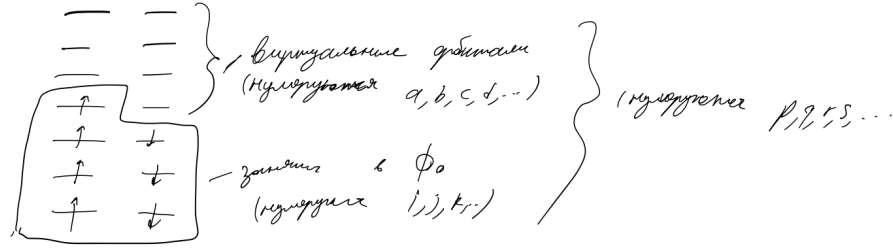 виртуальные орбитали
(нумеруются a, b, c, d, ...)
заняты в ϕ₀
(нумеруются i, j, k, ...)
(нумеруются p, q, r, s, ...